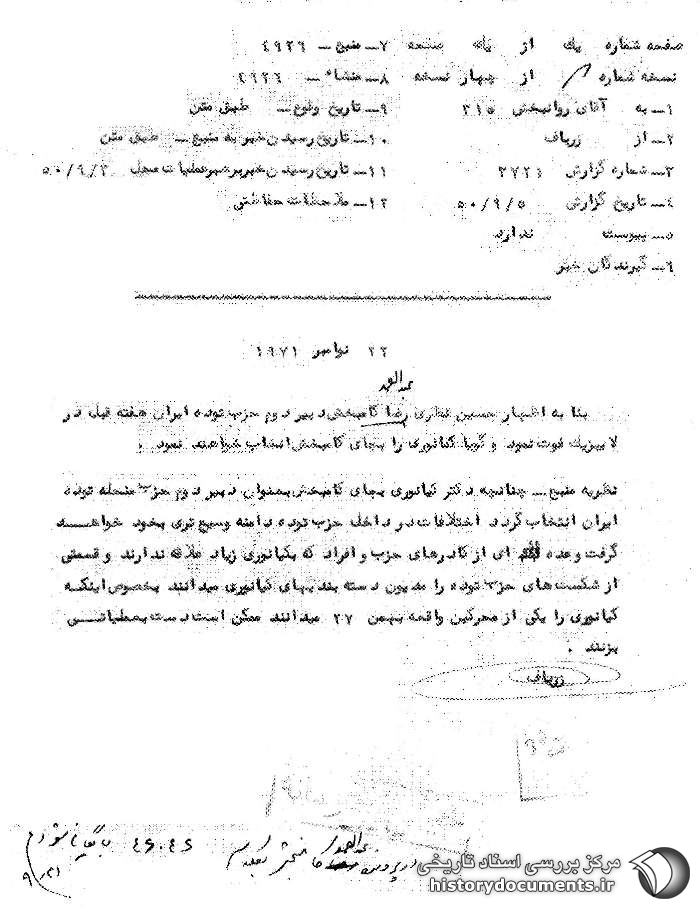 صفحه شماره یك از یك صفحه ۷ـ منبع ـ ۴۹۲۶
نسخه شماره از چهار نسخه ۸ـ منشاء ـ ۴۹۲۶
۱ـ به آقای روانبخش ۳۱۵ ۹ـ تاریخ وقوع ـ طبق متن
۲ـ از زرباف ۱۰ـ تاریخ رسیدن خبر به منبع ـ طبق متن
۳ـ شماره گزارش ۳۷۲۱ ۱۱ـ تاریخ رسیدن خبر بر هبر عملیات محل ۵۰/۹/۳
۴ـ تاریخ گزارش ۵۰/۹/۵ ۱۲ـ ملاحظات حفاظتی
۵ـ پیوست ندارد
۶ـ گیرندگان خبر
۲۲ نوامبر ۱۹۷۱
عبدالصمد
بنا به اظهار حسین نظری رضا کامبخش دبیر دوم حزب توده ایران هفته قبل در
لایبزیك فوت نمود و گویا کیانوری را بجای کامبخش انتخاب خواهند نمود .
نظریه منبع ـ چنانچه دکتر کیانوری بجای کامبخش بعنوان دبیر دوم حزب منحله توده
ایران انتخاب گردد اختلافات در داخل حزب توده دامنه وسیع تری بخود خواهد
گرفت و عده ای از کادرهای حزب و افراد که بکیانوری زیاد علاقه ندارند و قسمتی
از شکست های حزب توده را مدیون دسته بندیهای کیانوری میدانند بخصوص اینکه
کیانوری را یکی از محرکین واقعه بهمن ۲۷ میدانند ممکن است دست بعملیاتی
بزنند .
زرباف
عبدالصمد
در پرونده
۴۶۰۴۶
۹/۲۱
مرکز بررسی اسناد تاریخی
historydocuments.ir